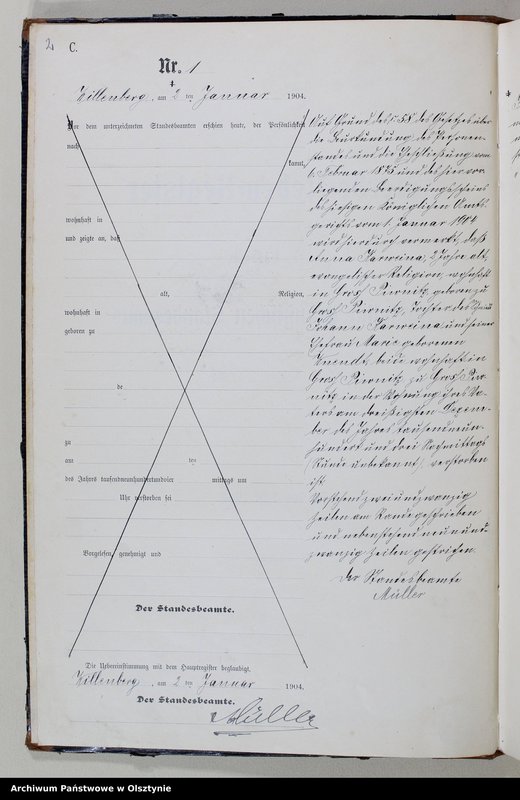 2
C.
Nr. 1
Willenberg am 2 ten Januar 1904.
Vor dem unterzeichneten Standesbeamten erschien heute, der Persönlichkeit
nach
kannt,
wohnhaft in
und zeigte an, daß
alt, Religion,
wohnhaft in
geboren zu
de
zu
am ten
des Jahres tausendneunhundertundvier mittags um
Uhr verstorben sei
Vorgelesen, genehmigt und
Der Standesbeamte.
Die Uebereinstimmung mit dem Hauptregister beglaubigt.
Willenberg am 2 ten Januar 1904.
Der Standesbeamte.
Müller
Auf Grund des § 58 des Gesetzes über
die Beurkundung des Personen-
standes und die Eheschließung vom
6. Februar 1875 und des hier vor-
liegenden Beerdigungsscheins
des hiesigen Königlichen Amts-
gerichts vom 1. Januar 1904
wird hierdurch vermerkt, daß
Anna 2 Jahre alt,
evangelischer Religion, wohnhaft
in Groß Piwnitz, geboren zu
Groß Piwnitz, Tochter des
Johann und seiner
Ehefrau Marie geborenen
beide wohnhaft in
Groß Piwnitz zu Groß Piw-
nitz in der Wohnung ihres Va-
ters am dreißigsten Dezem-
ber des Jahres tausendneun-
hundert und drei Nachmittags
(Stunde unbekannt) verstorben
ist
Vorstehend zweiundzwanzig
Zeilen am Rande geschrieben
und nebenstehend neunund-
zwanzig Zeilen gestrichen.
Der Standesbeamte
Müller
Archiwum Państwowe w Olsztynie